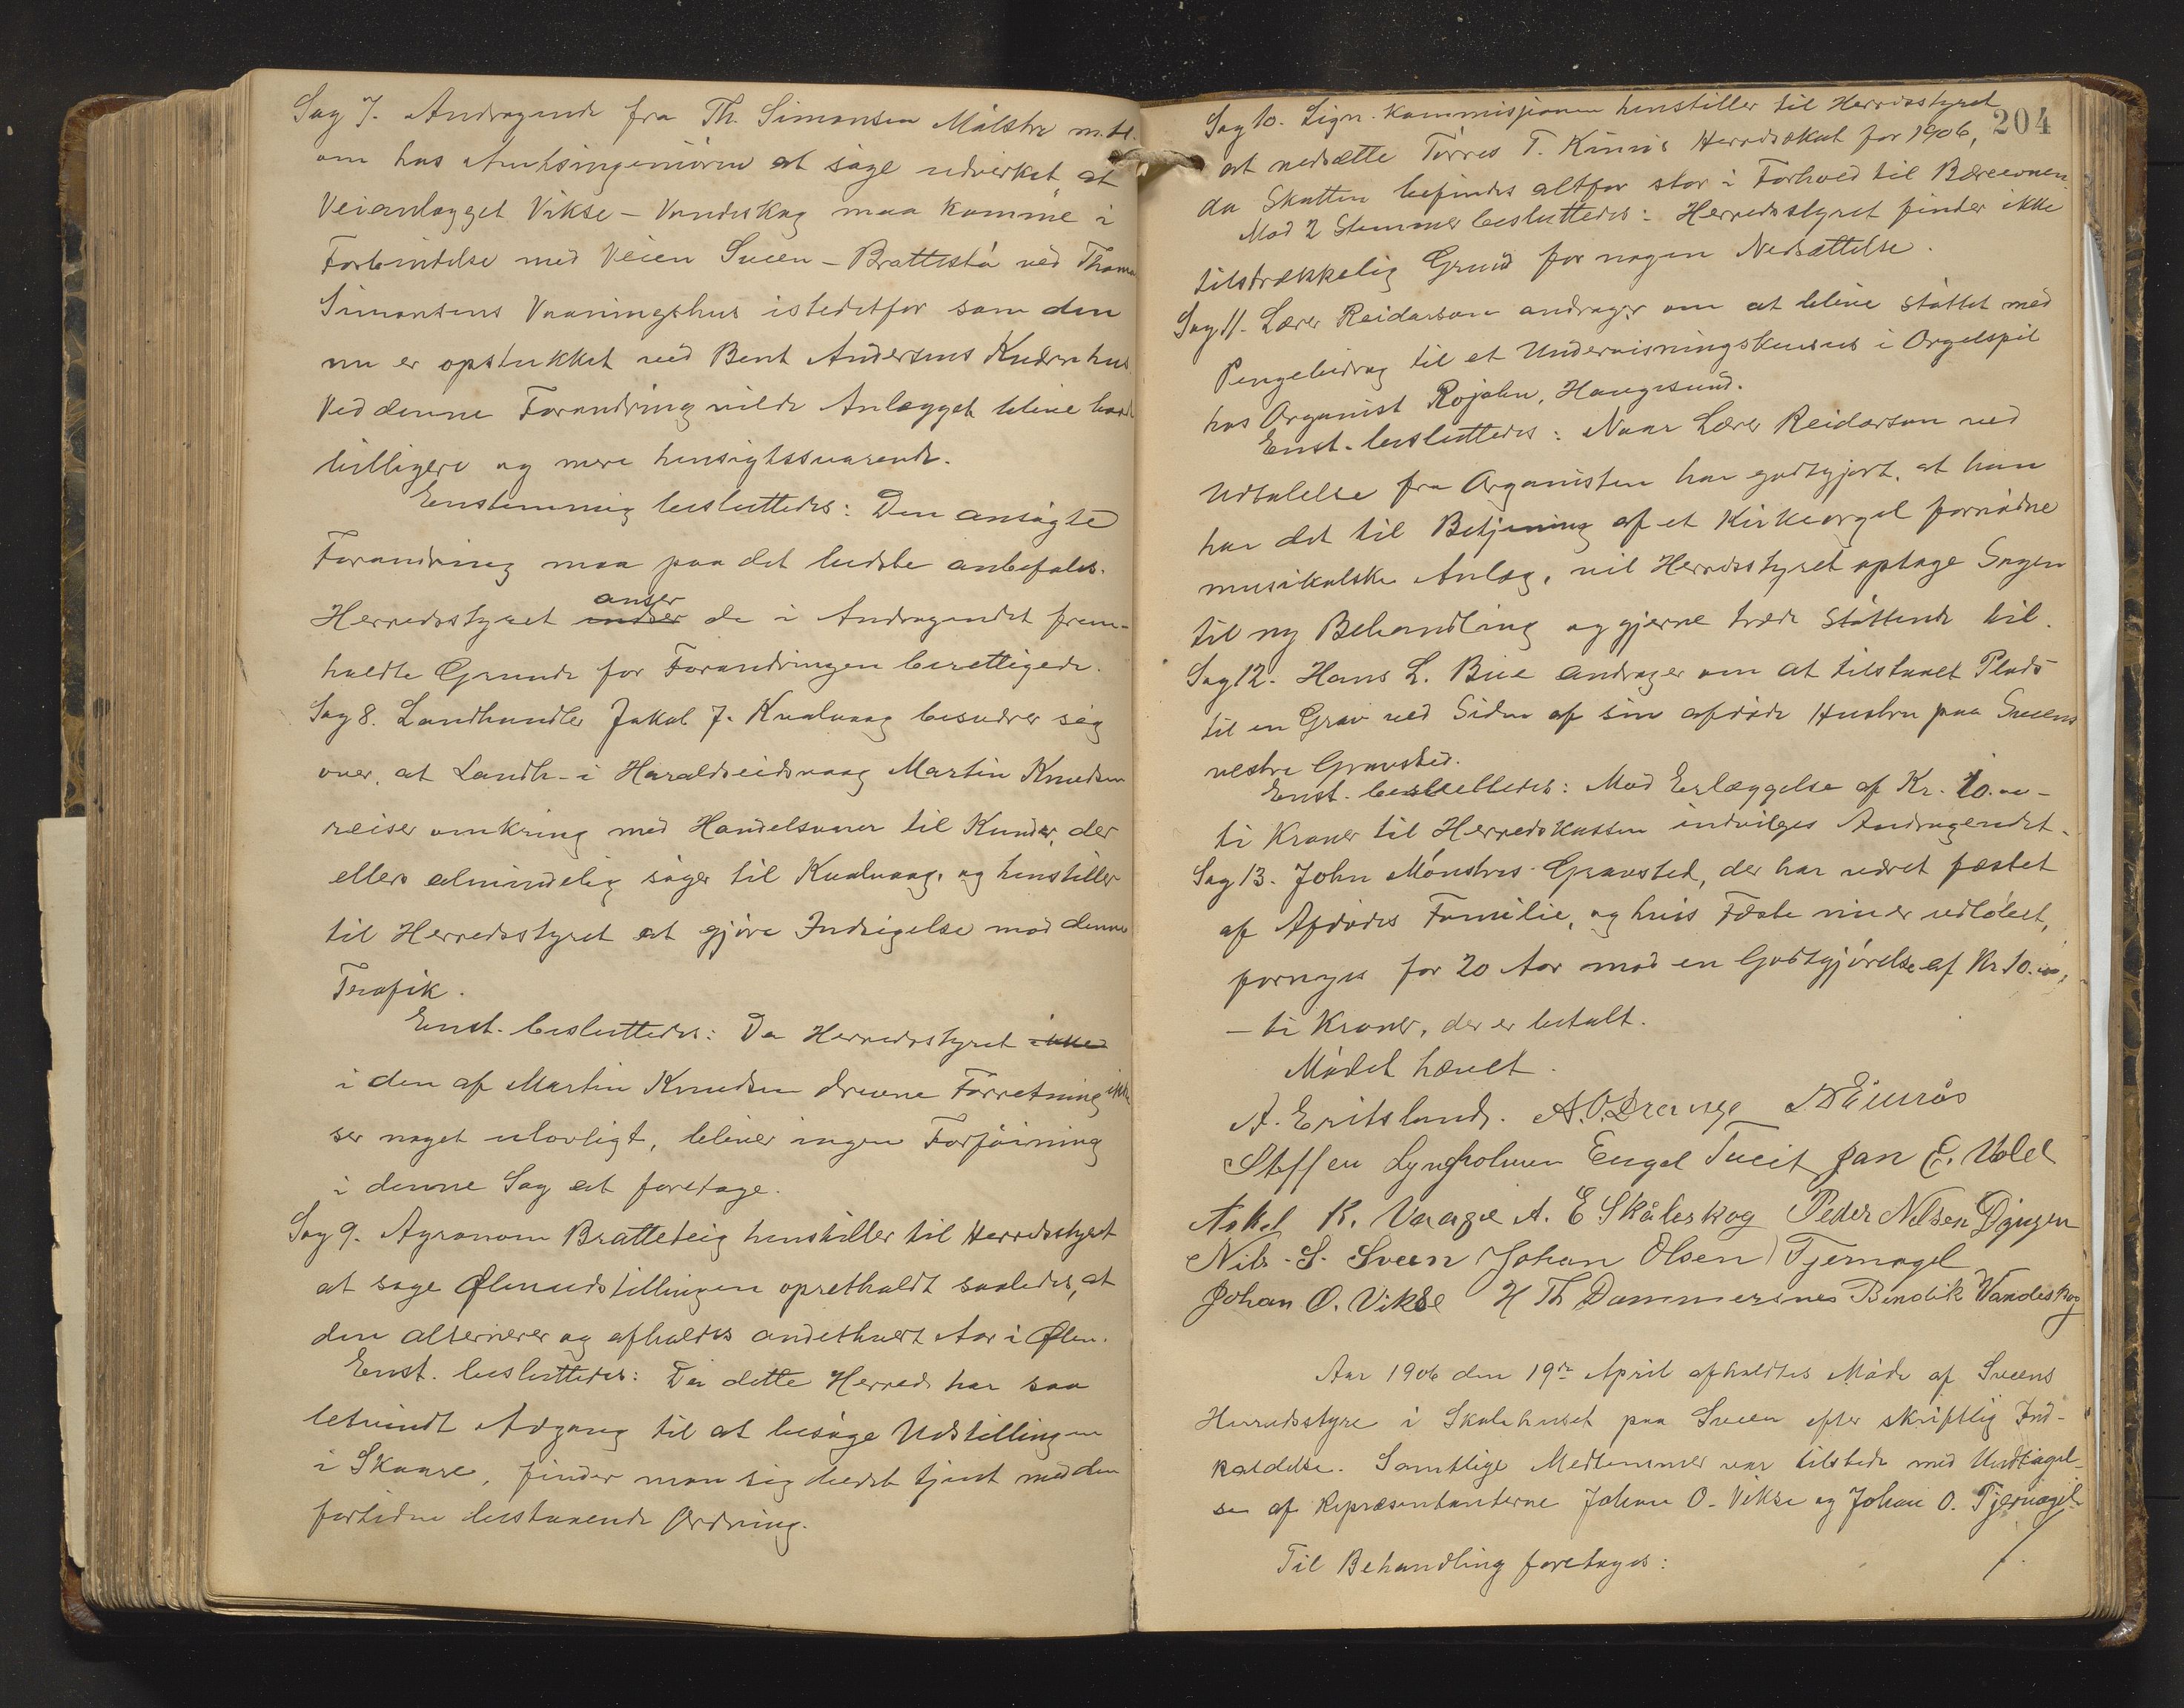 Sag 7. Andragende fra Th. Simonsen Målstre m. fl.
om hos Amtsingeniören at søge udvirket, at
Veianlægget Vikse - Vandeskog maa komme i
Forbindelse med Veien Sveen - Brattestö ved Thomas
Simonsens Vaaningshus istedetfor som den
nu er opstukket ved Bent Andersens
Ved denne Forandring vilde Anlægget blive baade
billigere og mere hensigtssvarende.
Enstemmig besluttedes: Den ansögte
Forandring maa paa det bedste anbefales.
anser
Herredsstyret indser de i Andragendet frem-
holdte Grunde for Forandringen berettigede.
Sag 8. Landhandler Jakob J. Kvalvaag besværer sig
over, at Landh. i Haraldseidsvaag Martin Knudsen
reiser omkring med Handelsvarer til Kunder, der
ellers almindelig söger til Kvalvaag, og henstiller
til Herredsstyret at gjöre Indsigelse mod denne
Trafik.
Enst. besluttedes: Da Herredsstyret ikke
i den af Martin Knudsen drevne Forretning ikke
ser noget ulovligt, bliver ingen Forföining
i denne Sag at foretage.
Sag 9. Agronom Bratteteig henstiller til Herredsstyret
at søge Ølenudstillingen opretholdt saaledes, at
den alternerer og afholdes andethvert Aar i Ølen.
Enst. besluttedes: Da dette Herred har saa
letvindt Adgang til at besöge Udstillingen
i Skaare, finder man sig bedst tjent med den
fortiden bestaaende Ordning.
204
Sag 10. Lign. kommissjonen henstiller til Herredsstyret
at nedsætte Törres T. Kinns Herredsskat for 1906,
da Skatten befindes altfor stor i Forhold til Bæreevnen.
Mod 2 Stemmer besluttedes: Herredsstyret finder ikke
tilstrækkelig Grund for nogen Nedsættelse.
Sag 11. Lærer Reidarson andrager om at blive stöttet med
Pengebidrag til et Undervisningskursus i Orgelspil
hos Organist Rojahn, Haugesund.
Enst. besluttedes: Naar Lærer Reidarson ved
Udtalelse fra Organisten har godtgjort, at han
har det til Betjening af et Kirkeorgel fornödne
musikalske Anlæg, vil Herredsstyret optage Sagen
til ny Behandling og gjerne træde stöttende til.
Sag 12. Hans L. Bue andrager om at tilstaaet Plads
til en Grav ved Siden af sin afdöde Hustru paa Sveens
vestre Gravsted.
Enst. besluttedes: Mod Erlæggelse af Kr. 10.00 -
ti Kroner til Herredskassen indvilges Andragendet.
Sag 13. John Mönstres Gravsted, der har været fæstet
af Afdödes Familie, og hvis Fæste nu er udlöbet,
fornyes for 20 Aar mod en Godtgjörelse af Kr 10.00,
- ti Kroner, der er betalt.
Mödet hævet.
A. Eritsland. A. O. Drange
Steffen Lyngholmen Engel Tveit Jan E. Vold
Askel K. Vaage A. E Skåleskog Peder Nilsen Döugen
Nils. S. Sveen Johan Olsen Tjernagel
Johan O. Vikse H Th Dommersnes Bendik Vandeskog
Aar 1906 den 19de April afholdtes Möde af Sveens
Herredsstyre i Skolehuset paa Sveen efter skriftlig Ind-
kaldelse. Samtlige Medlemmer var tilstede med Undtagel-
se af Repræsentanterne Johan O. Vikse og Johan O. Tjernagel.
Til Behandling foretages: